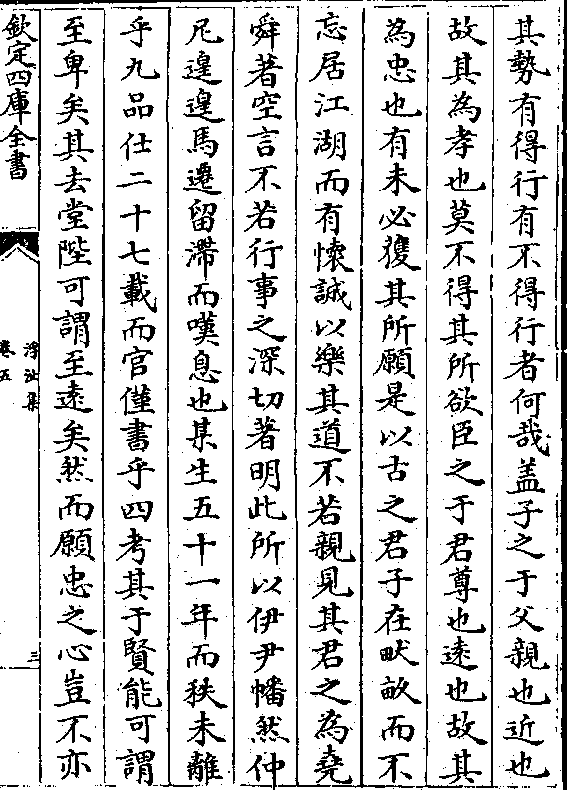 其勢有得行有不得行者何哉盖子之于父親也近也
故其為孝也莫不得其所欲臣之于君尊也遠也故其
為忠也有未必獲其所願是以古之君子在畎畝而不
忘居江湖而有懷誠以樂其道不若親見其君之為堯
舜著空言不若行事之深切著明此所以伊尹幡然仲
尼遑遑馬遷留滯而嘆息也某生五十一年而秩未離
乎九品仕二十七載而官僅書乎四考其于賢能可謂
至卑矣其去堂陛可謂至遠矣然而願忠之心豈不亦
欽定四庫全書
浮沚集
卷五
三